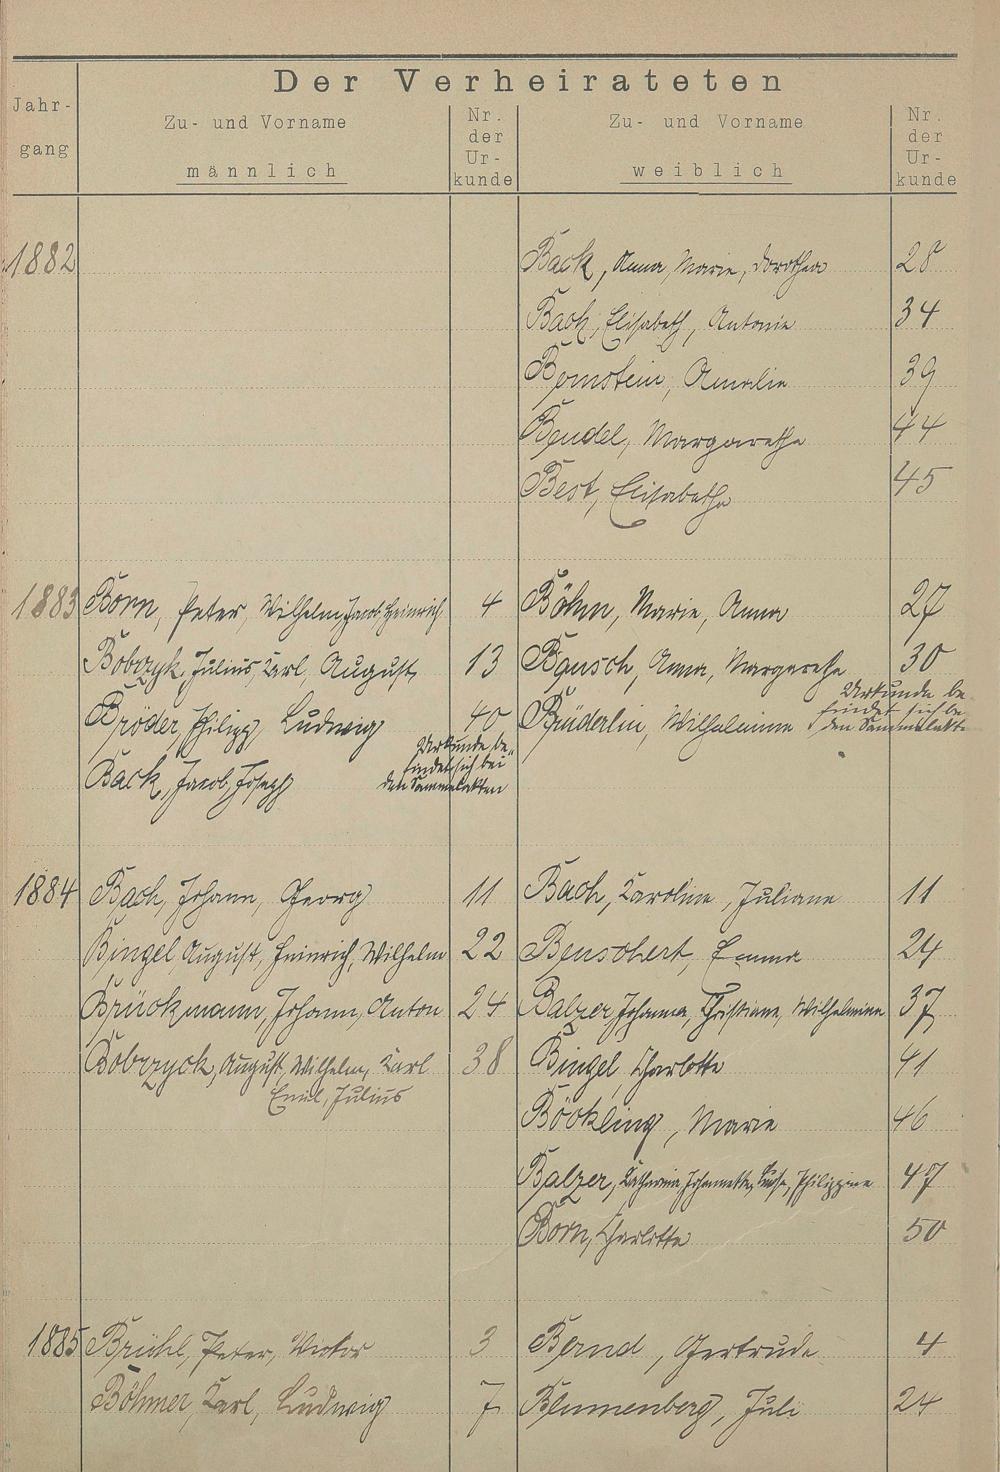 Der Verheirateten
Jahr-
gang
Zu- und Vorname
männlich
Nr.
der
Ur-
kunde
Zu- und Vorname
weiblich
Nr.
der
Ur-
kunde
1882 Back, Anna, Marie, Dorothea 28
Back, Elisabeth, Antonie 34
Bernstein, Amalie 39
Bendel, Margarethe 44
Best, Elisabethe 45
1883 Born, Peter, Wilhelm, Jacob, Heinrich 4 Böhn, Marie, Anna 27
Bobrzyk, Julius, Karl, August 13 Bausch, Anna, Margarethe 30
Bröder, Philipp Ludwig 40 Brüderlin, Wilhelmine Urkunde be-
findet sich be
den Sammelakte
Back, Jacob, Joseph Urkunde be-
findet sich bei
den Sammelakten
1884 Bach, Johann, Georg 11 Bach, Karoline, Juliane 11
Bingel August, Heinrich, Wilhelm 22 Benschert, Emma 24
Brückmann, Johann, Anton 24 Balzer, Johanna, Christiane, Wilhelmine 37
Bobrzyck, August, Wilhelm, Karl 38 Bingel, Charlotte 41
Emil, Julius
Böckling, Marie 46
Balzer, Katharina, Johannette, Luise, Philippine 47
Born, Charlotte 50
1885 Brühl, Peter, Victor 3 Bernd, Gertrude 4
Böhmer, Karl, Ludwig 7 Blumenberg, Juli 24